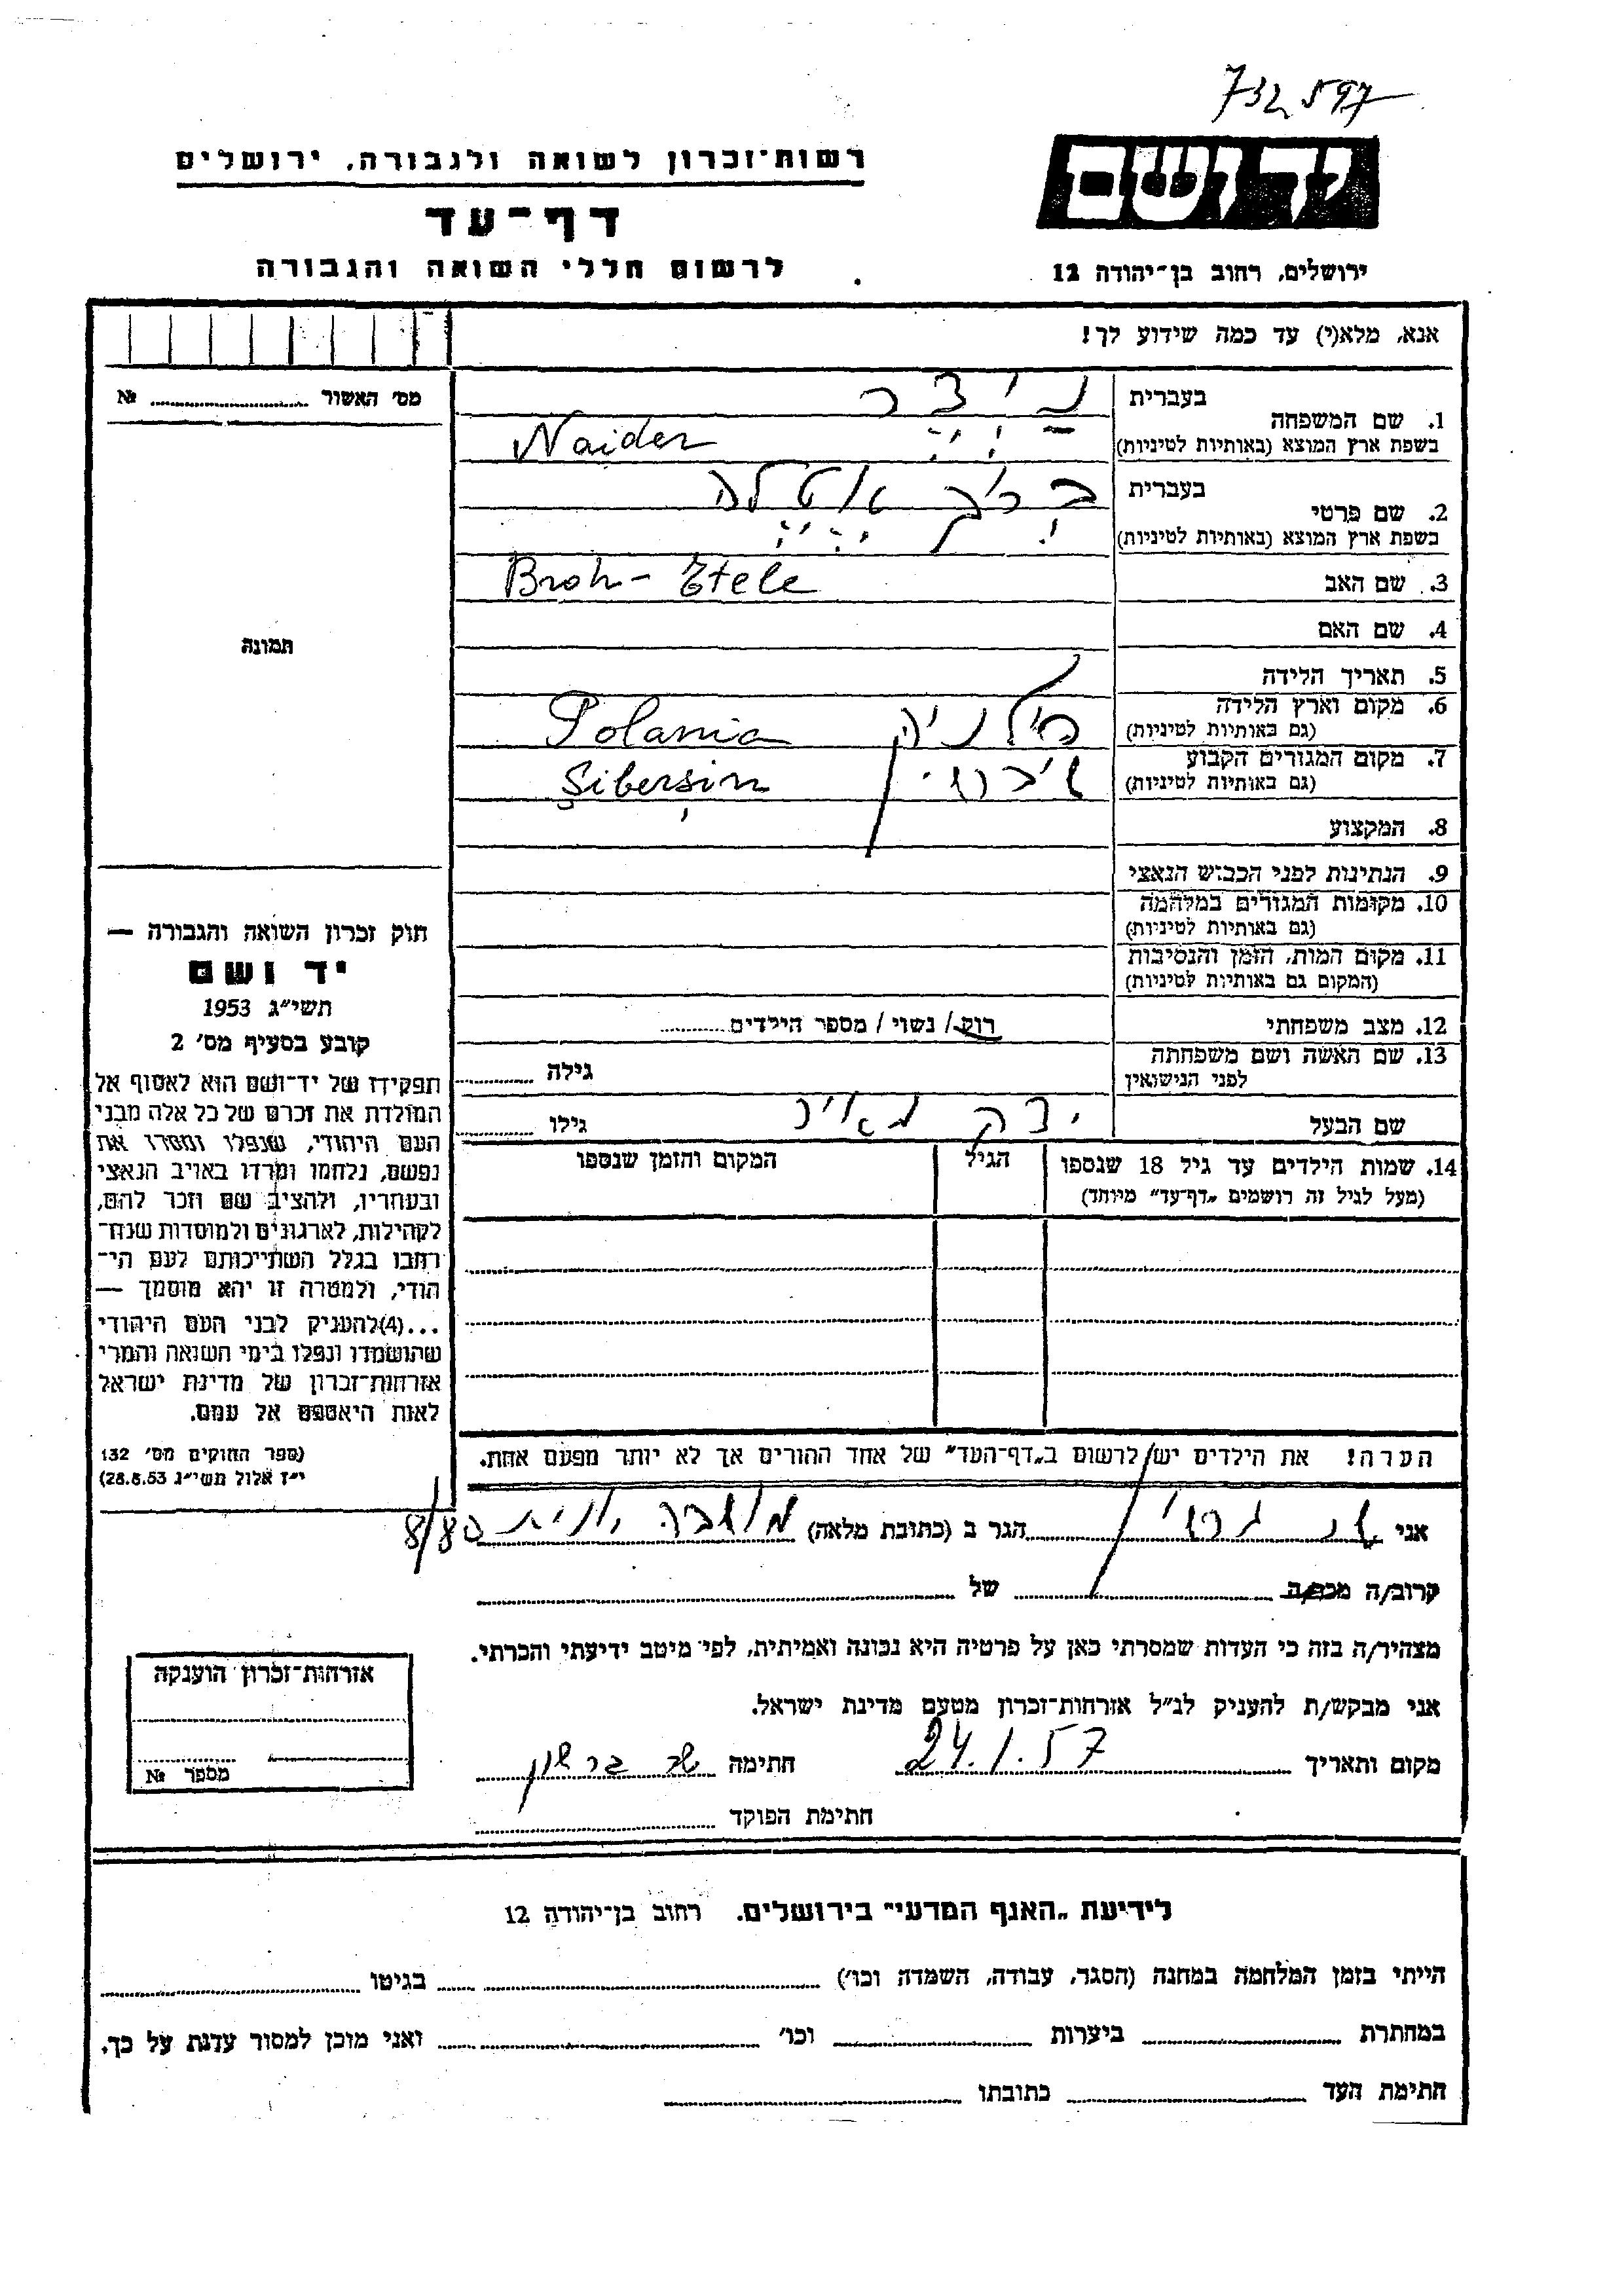 732597
יד ושם
רשות־זכרון לשואה ולגבורה, ירושלים
דף־עד
לרשום חללי השואה והגבורה
ירושלים, רחוב בן־יהודה 12
אנא, מלא(י) עד כמה שידוע לך!
מס׳ האשור № 
תמונה
1. שם המשפחה
בעברית
בשפת ארץ המוצא (באותיות לטיניות)
Naider
2. שם פרטי
בעברית
בשפת ארץ המוצא (באותיות לטיניות)
3. שם האב
Broh - Etele
4. שם האם
5. תאריך הלידה
6. מקום וארץ הלידה
(גם באותיות לטיניות)
פולניה Polania
7. מקום המגורים הקבוע
(גם באותיות לטיניות)
Sibersin
8. המקצוע
9. הנתינות לפני הכבוש הנאצי
10. מקומות המגורים במלחמה
(גם באותיות לטיניות)
11. מקום המות, הזמן והנסיבות
(המקום גם באותיות לטיניות)
12. מצב משפחתי רוק / נשוי / מספר הילדים
13. שם האשה ושם משפחתה
לפני הנישואין
גילה
שם הבעל גילו
14. שמות הילדים עד גיל 18 שנספו
(מעל לגיל זה רושמים „דף־עד” מיוחד)
הגיל
המקום והזמן שנספו
הערה! את הילדים יש לרשום ב„דף־העד” של אחד ההורים אך לא יותר מפעם אחת.
חוק זכרון השואה והגבורה —
יד ושם
תשי״ג 1953
קובע בסעיף מס׳ 2
תפקידו של יד־ושם הוא לאסוף אל
המולדת את זכרם של כל אלה מבני
העם היהודי, שנפלו ומסרו את
נפשם, נלחמו ומרדו באויב הנאצי
ובעוזריו, ולהציב שם וזכר להם,
לקהילות, לארגונים ולמוסדות שנח־
רבו בגלל השתייכותם לעם הי־
הודי, ולמטרה זו יהא מוסמך —
...(4)להעניק לבני העם היהודי
שהושמדו ונפלו בימי השואה והמרי
אזרחות־זכרון של מדינת ישראל
לאות היאספם אל עמם.
(ספר החוקים מס׳ 132
י״ז אלול תשי״ג 28.8.53)
אני הגר ב (כתובת מלאה) 8/80
קרוב/ה מכר/ה של
מצהיר/ה בזה כי העדות שמסרתי כאן על פרטיה היא נכונה ואמיתית, לפי מיטב ידיעתי והכרתי.
אני מבקש/ת להעניק לנ״ל אזרחות־זכרון מטעם מדינת ישראל.
מקום ותאריך 24.1.57 חתימה
חתימת הפוקד
אזרחות־זכרון הוענקה
מספר №
לידיעת „האגף המדעי” בירושלים. רחוב בן־יהודה 12
הייתי בזמן המלחמה במחנה (הסגר, עבודה, השמדה וכו׳) בגיטו
במחתרת ביערות וכו׳ ואני מוכן למסור עדות על כך.
חתימת העד כתובתו